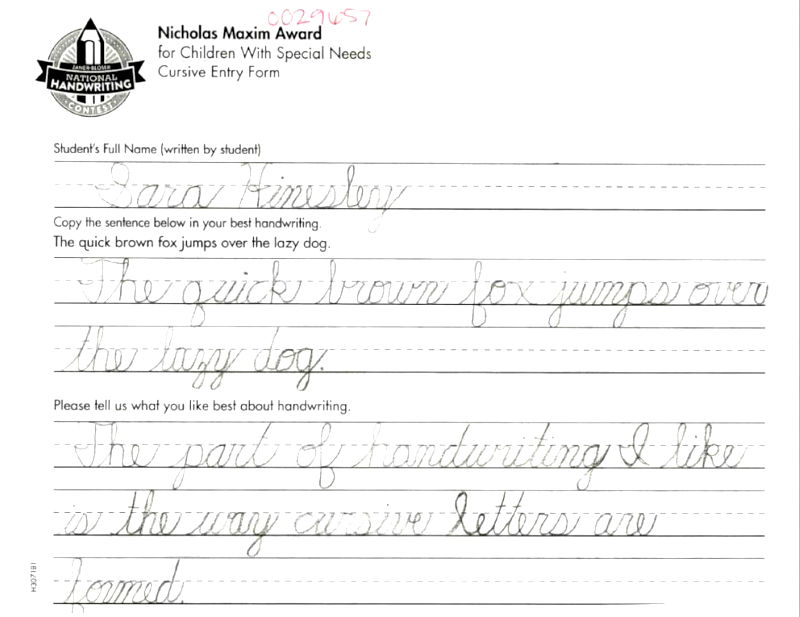 0029457
Nicholas Maxim Award
for Children With Special Needs
Cursive Entry Form
ZANER-BLOSER
NATIONAL
HANDWRITING
CONTEST
Student's Full Name (written by student)
Sara Hinesley
Copy the sentence below in your best handwriting.
The quick brown fox jumps over the lazy dog.
The quick brown fox jumps over
the lazy dog.
Please tell us what you like best about handwriting.
The part of handwriting I like
is the way cursive letters are
formed.
H307181